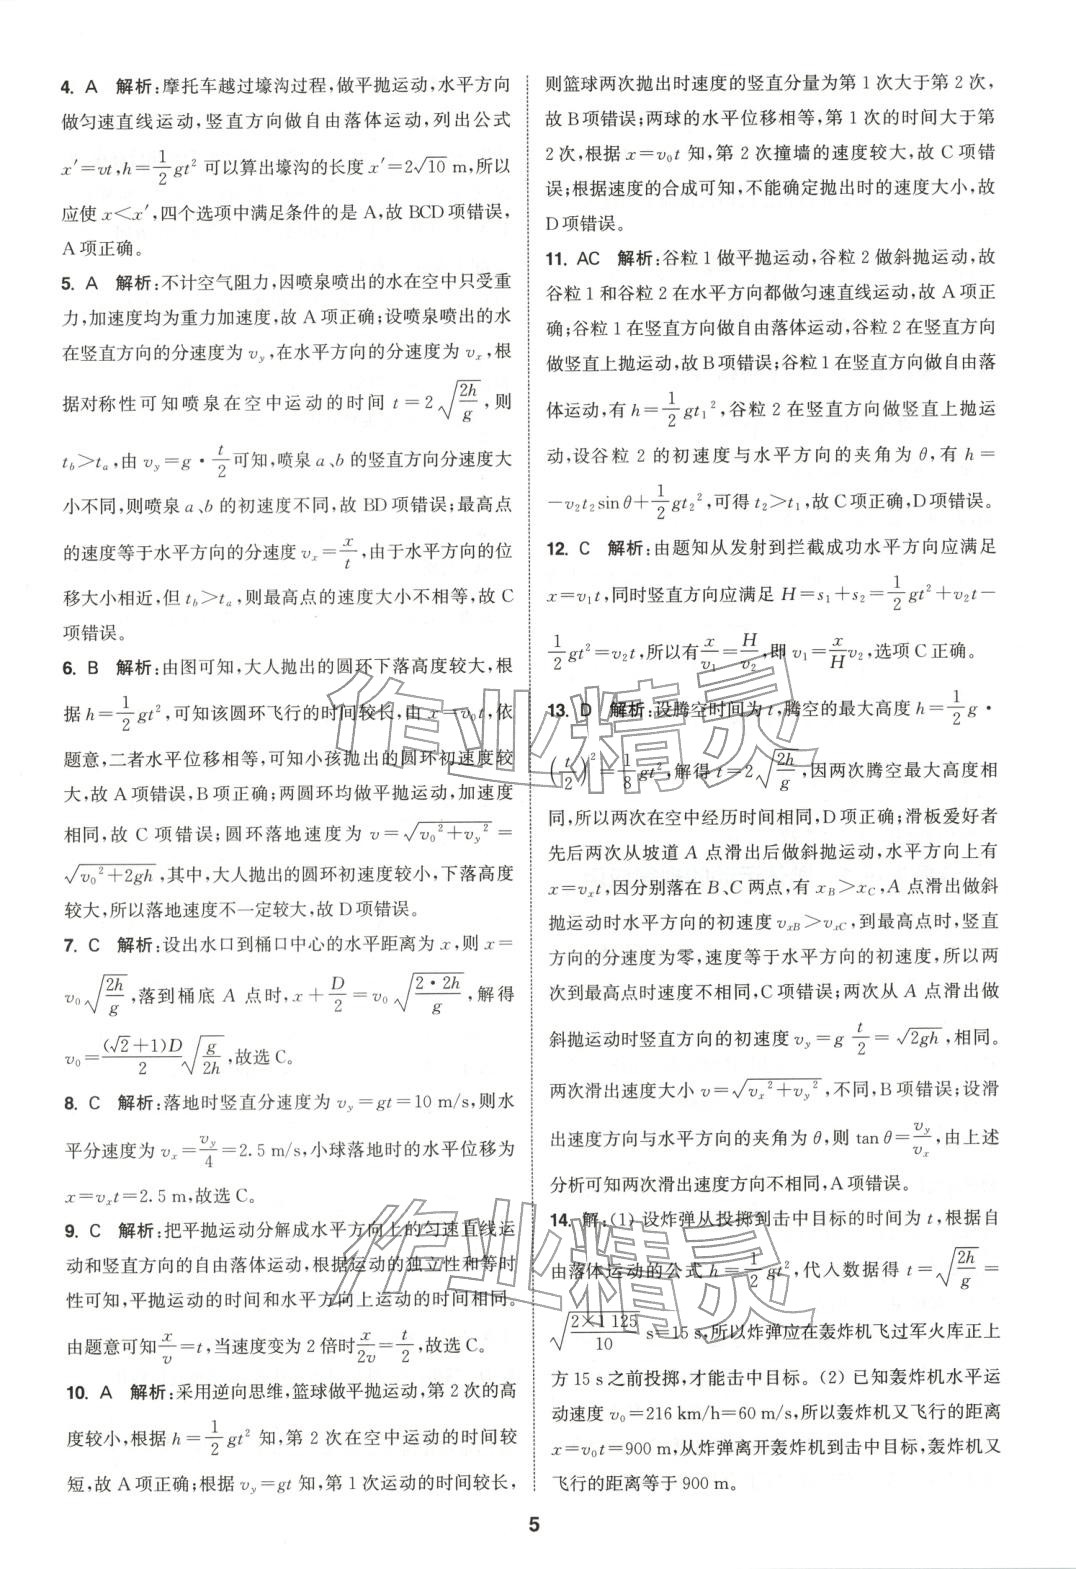 4. A 解析:摩托车越过壕沟过程,做平抛运动,水平方向
做匀速直线运动,竖直方向做自由落体运动,列出公式
x′=vt,h=1/2gt²可以算出壕沟的长度 x′=2√10 m,所以
应使 x<x′,四个选项中满足条件的是 A,故 BCD 项错误,
A 项正确。
5. A 解析:不计空气阻力,因喷泉喷出的水在空中只受重
力,加速度均为重力加速度,故 A 项正确;设喷泉喷出的水
在竖直方向的分速度为 v_y,在水平方向的分速度为 v_x,根
据对称性可知喷泉在空中运动的时间 t=2√(2h/g),则
t_b>t_a,由 v_y=g·t/2可知,喷泉 a、b 的竖直方向分速度大
小不同,则喷泉 a、b 的初速度不同,故 BD 项错误;最高点
的速度等于水平方向的分速度 v_x=x/t,由于水平方向的位
移大小相近,但 t_b>t_a,则最高点的速度大小不相等,故 C
项错误。
6. B 解析:由图可知,大人抛出的圆环下落高度较大,根
据 h=1/2gt²,可知该圆环飞行的时间较长,由 x=v₀t,依
题意,二者水平位移相等,可知小孩抛出的圆环初速度较
大,故 A 项错误,B 项正确;两圆环均做平抛运动,加速度
相同,故 C 项错误;圆环落地速度为 v=√(v₀²+v_y²)=
√(v₀²+2gh),其中,大人抛出的圆环初速度较小,下落高度
较大,所以落地速度不一定较大,故 D 项错误。
7. C 解析:设出水口到桶口中心的水平距离为 x,则 x=
v₀√(2h/g),落到桶底 A 点时,x+D/2=v₀√(2·2h/g),解得
v₀=(√2+1)D/2 √(g/2h),故选 C。
8. C 解析:落地时竖直分速度为 v_y=gt=10 m/s,则水
平分速度为 v_x=v_y/4=2.5 m/s,小球落地时的水平位移为
x=v_xt=2.5 m,故选 C。
9. C 解析:把平抛运动分解成水平方向上的匀速直线运
动和竖直方向的自由落体运动,根据运动的独立性和等时
性可知,平抛运动的时间和水平方向上运动的时间相同。
由题意可知x/v=t,当速度变为 2 倍时x/2v=t/2,故选 C。
10. A 解析:采用逆向思维,篮球做平抛运动,第 2 次的高
度较小,根据 h=1/2gt²知,第 2 次在空中运动的时间较
短,故 A 项正确;根据 v_y=gt 知,第 1 次运动的时间较长,
则篮球两次抛出时速度的竖直分量为第 1 次大于第 2 次,
故 B 项错误;两球的水平位移相等,第 1 次的时间大于第
2 次,根据 x=v₀t 知,第 2 次撞墙的速度较大,故 C 项错
误;根据速度的合成可知,不能确定抛出时的速度大小,故
D 项错误。
11. AC 解析:谷粒 1 做平抛运动,谷粒 2 做斜抛运动,故
谷粒 1 和谷粒 2 在水平方向都做匀速直线运动,故 A 项正
确;谷粒 1 在竖直方向做自由落体运动,谷粒 2 在竖直方向
做竖直上抛运动,故 B 项错误;谷粒 1 在竖直方向做自由落
体运动,有 h=1/2gt₁²,谷粒 2 在竖直方向做竖直上抛运
动,设谷粒 2 的初速度与水平方向的夹角为 θ,有 h=
-v₂t₂sin θ+1/2gt₂²,可得 t₂>t₁,故 C 项正确,D 项错误。
12. C 解析:由题知从发射到拦截成功水平方向应满足
x=v₁t,同时竖直方向应满足 H=s₁+s₂=1/2gt²+v₂t-
1/2gt²=v₂t,所以有x/v₁=H/v₂,即 v₁=x/H v₂,选项 C 正确。
13. D 解析:设腾空时间为 t,腾空的最大高度 h=1/2g·
(t/2)²=1/8gt²,解得 t=2√(2h/g),因两次腾空最大高度相
同,所以两次在空中经历时间相同,D 项正确;滑板爱好者
先后两次从坡道 A 点滑出后做斜抛运动,水平方向上有
x=v_xt,因分别落在 B、C 两点,有 x_B>x_C,A 点滑出做斜
抛运动时水平方向的初速度 v_xB>v_xC,到最高点时,竖直
方向的分速度为零,速度等于水平方向的初速度,所以两
次到最高点时速度不相同,C 项错误;两次从 A 点滑出做
斜抛运动时竖直方向的初速度 v_y=g t/2=√(2gh),相同。
两次滑出速度大小 v=√(v_x²+v_y²),不同,B 项错误;设滑
出速度方向与水平方向的夹角为 θ,则 tan θ=v_y/v_x,由上述
分析可知两次滑出速度方向不相同,A 项错误。
14. 解:(1) 设炸弹从投掷到击中目标的时间为 t,根据自
由落体运动的公式 h=1/2gt²,代入数据得 t=√(2h/g)=
√(2×1 125/10) s=15 s,所以炸弹应在轰炸机飞过军火库正上
方 15 s 之前投掷,才能击中目标。(2) 已知轰炸机水平运
动速度 v₀=216 km/h=60 m/s,所以轰炸机又飞行的距离
x=v₀t=900 m,从炸弹离开轰炸机到击中目标,轰炸机又
飞行的距离等于 900 m。
5
作业精灵
作业精灵